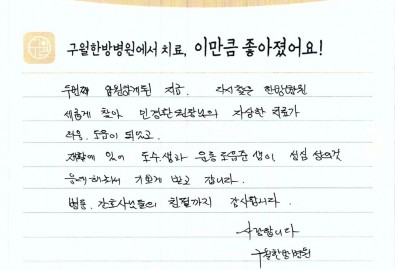 구월한방병원에서 치료, 이만큼 좋아졌어요!
두번째 입원하게된 지금. 다시찾은 한방병원
새롭게 찾아 민경환원장님의 자상한 치료가
너무. 도움이 되었고.
재활에 있어 도수.샘과 운동 도움준 샘이 성심 성의껏
응대해줘서 기쁘게 받고 갑니다.
병동. 간호사님들의 친절까지 감사합니다.
사랑합니다
구월한방병원